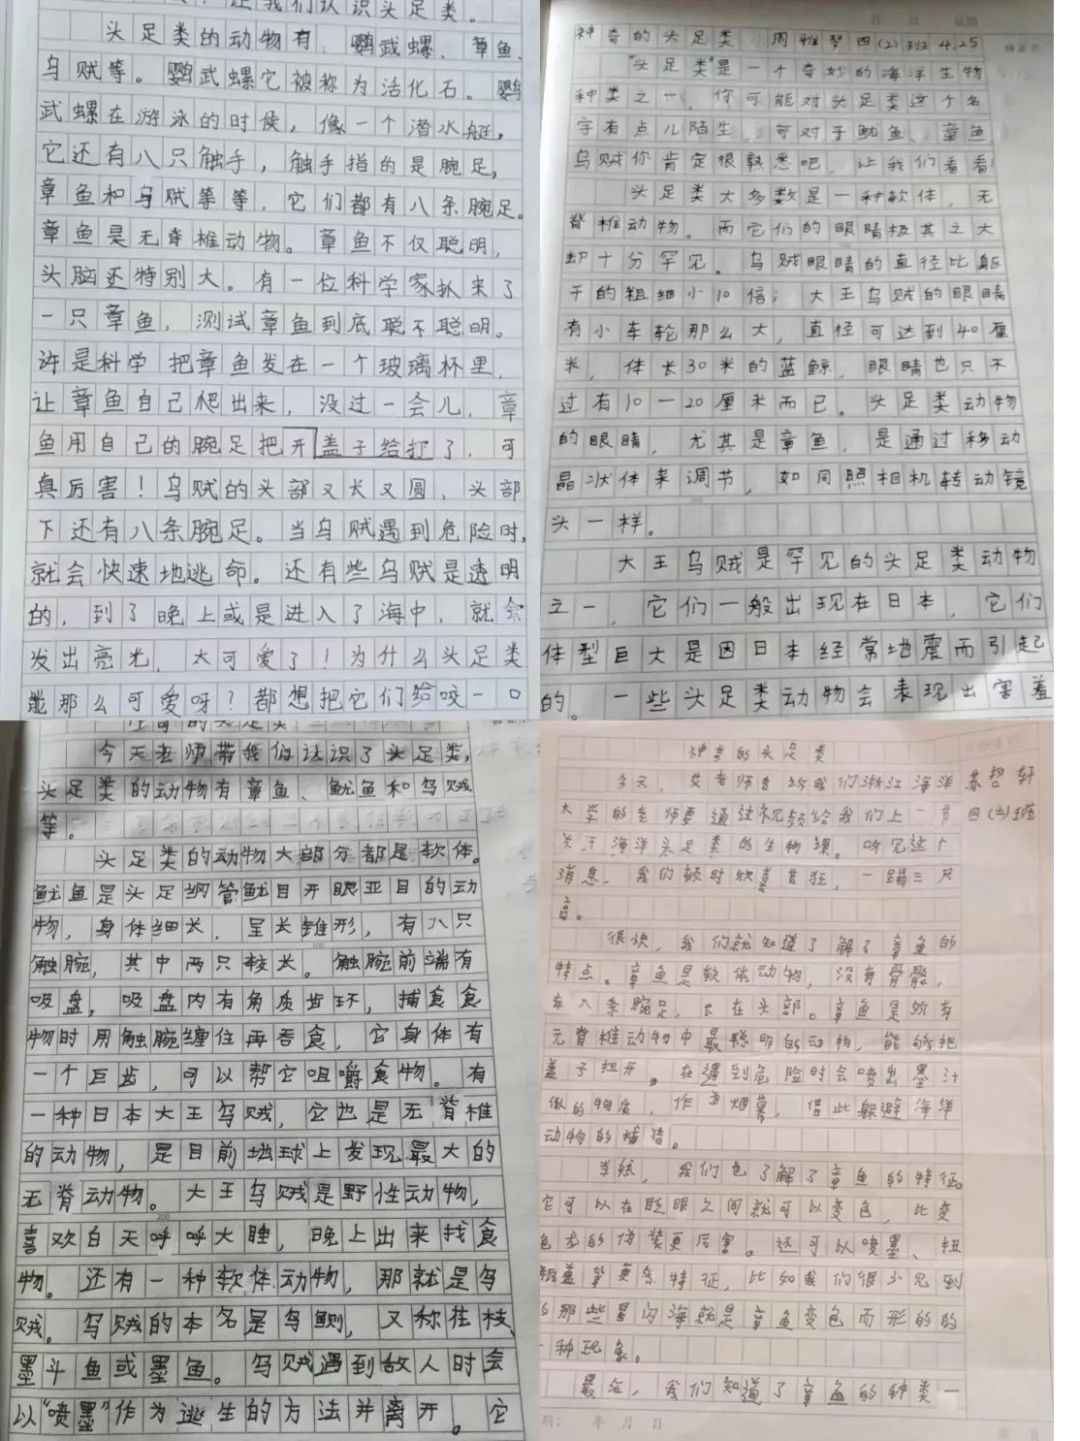 让我们认识头足类。
头足类的动物有，鹦武螺、章鱼、
乌贼等。鹦武螺它被称为活化石。鹦
武螺在游泳的时侯，像一个潜水艇，
它还有八只触手，触手指的是腕足，
章鱼和乌贼等等，它们都有八条腕足。
章鱼是无脊椎动物。章鱼不仅聪明，
头脑还特别大。有一位科学家扒来了
一只章鱼，测试章鱼到底聪不聪明。
许是科学 把章鱼发在一个玻璃杯里，
让章鱼自己爬出来，没过一会儿，章
鱼用自己的腕足把开盖子给打了，可
真厉害！乌贼的头部又长又圆，头部
下还有八条腕足。当乌贼遇到危险时，
就会快速地逃命。还有些乌贼是透明
的，到了晚上或是进入了海中，就会
发出亮光，大可爱了！为什么头足类
那么可爱呀？都想把它们给咬一口
神奇的头足类 周雅琴四(2)班 4.25
“头足类”是一个奇妙的海洋生物
种类之一，你可能对头足类这个名
字有点儿陌生，可对于鱿鱼、章鱼
乌贼你肯定很熟悉吧，让我们看看！
头足类大多数是一种软体，无
脊椎动物。而它们的眼睛极其之大
却十分罕见。乌贼眼睛的直径比躯
干的粗细小10倍；大王乌贼的眼睛
有小车轮那么大，直径可达到40厘
米，体长30米的蓝鲸，眼睛也只不
过有10一20厘米而已。头足类动物
的眼睛，尤其是章鱼，是通过移动
晶状体来调节，如同照相机转动镜
头一样。
大王乌贼是罕见的头足类动物
之一，它们一般出现在日本，它们
体型巨大是因日本经常地震而引起
的。一些头足类动物会表现出害羞
神奇的头足类
今天老师带我们认识了头足类，
头足类的动物有章鱼、鱿鱼和乌贼
等。
头足类的动物大部分都是软体。
鱿鱼是头足纲管鱿目开眼亚目的动
物，身体细长，呈长锥形，有八只
触腕，其中两只较长。触腕前端有
吸盘，吸盘内有角质齿环，捕食食
物时用触腕缠住再吞食，它身体有
一个巨齿，可以帮它咀嚼食物。有
一种日本大王乌贼，它也是无脊椎
的动物，是目前地球上发现最大的
无脊动物。大王乌贼是野性动物，
喜欢白天呼呼大睡，晚上出来找食
物。还有一种软体动物，那就是乌
贼。乌贼的本名是乌鲗，又称花枝、
墨斗鱼或墨鱼。乌贼遇到敌人时会
以“喷墨”作为逃生的方法并离开。它
神奇的头足类
今天，老师告诉我们浙江海洋 苏哲轩
大学的老师要通过视频给我们上一节 四(3)班
关于海洋头足类的生物课。听见这个
消息，我们顿时欣喜若狂，一蹦三尺
高。
很快，我们就知道了解了章鱼的
特点。章鱼是软体动物，没有骨骼，
有八条腕足，它在头部。章鱼是所有
无脊椎动物中最聪明的动物，能够把
盖子扭开。在遇到危险时会喷出墨汁
似的物质，作为烟幕，借此躲避海洋
动物的捕猎。
当然，我们也了解了章鱼的特征。
它可以在眨眼之间就可以变色，比变
色龙的伪装更厉害。还可以喷墨、
等更多特征，比如我们很少见到
的那些星闪海就是章鱼变色而形的的
一种现象。
最后，我们知道了章鱼的种类一
年 月 日